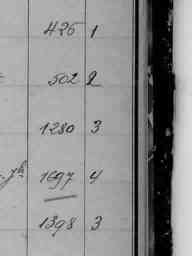 426 1
502 2
1280 3
1697 4
1398 3